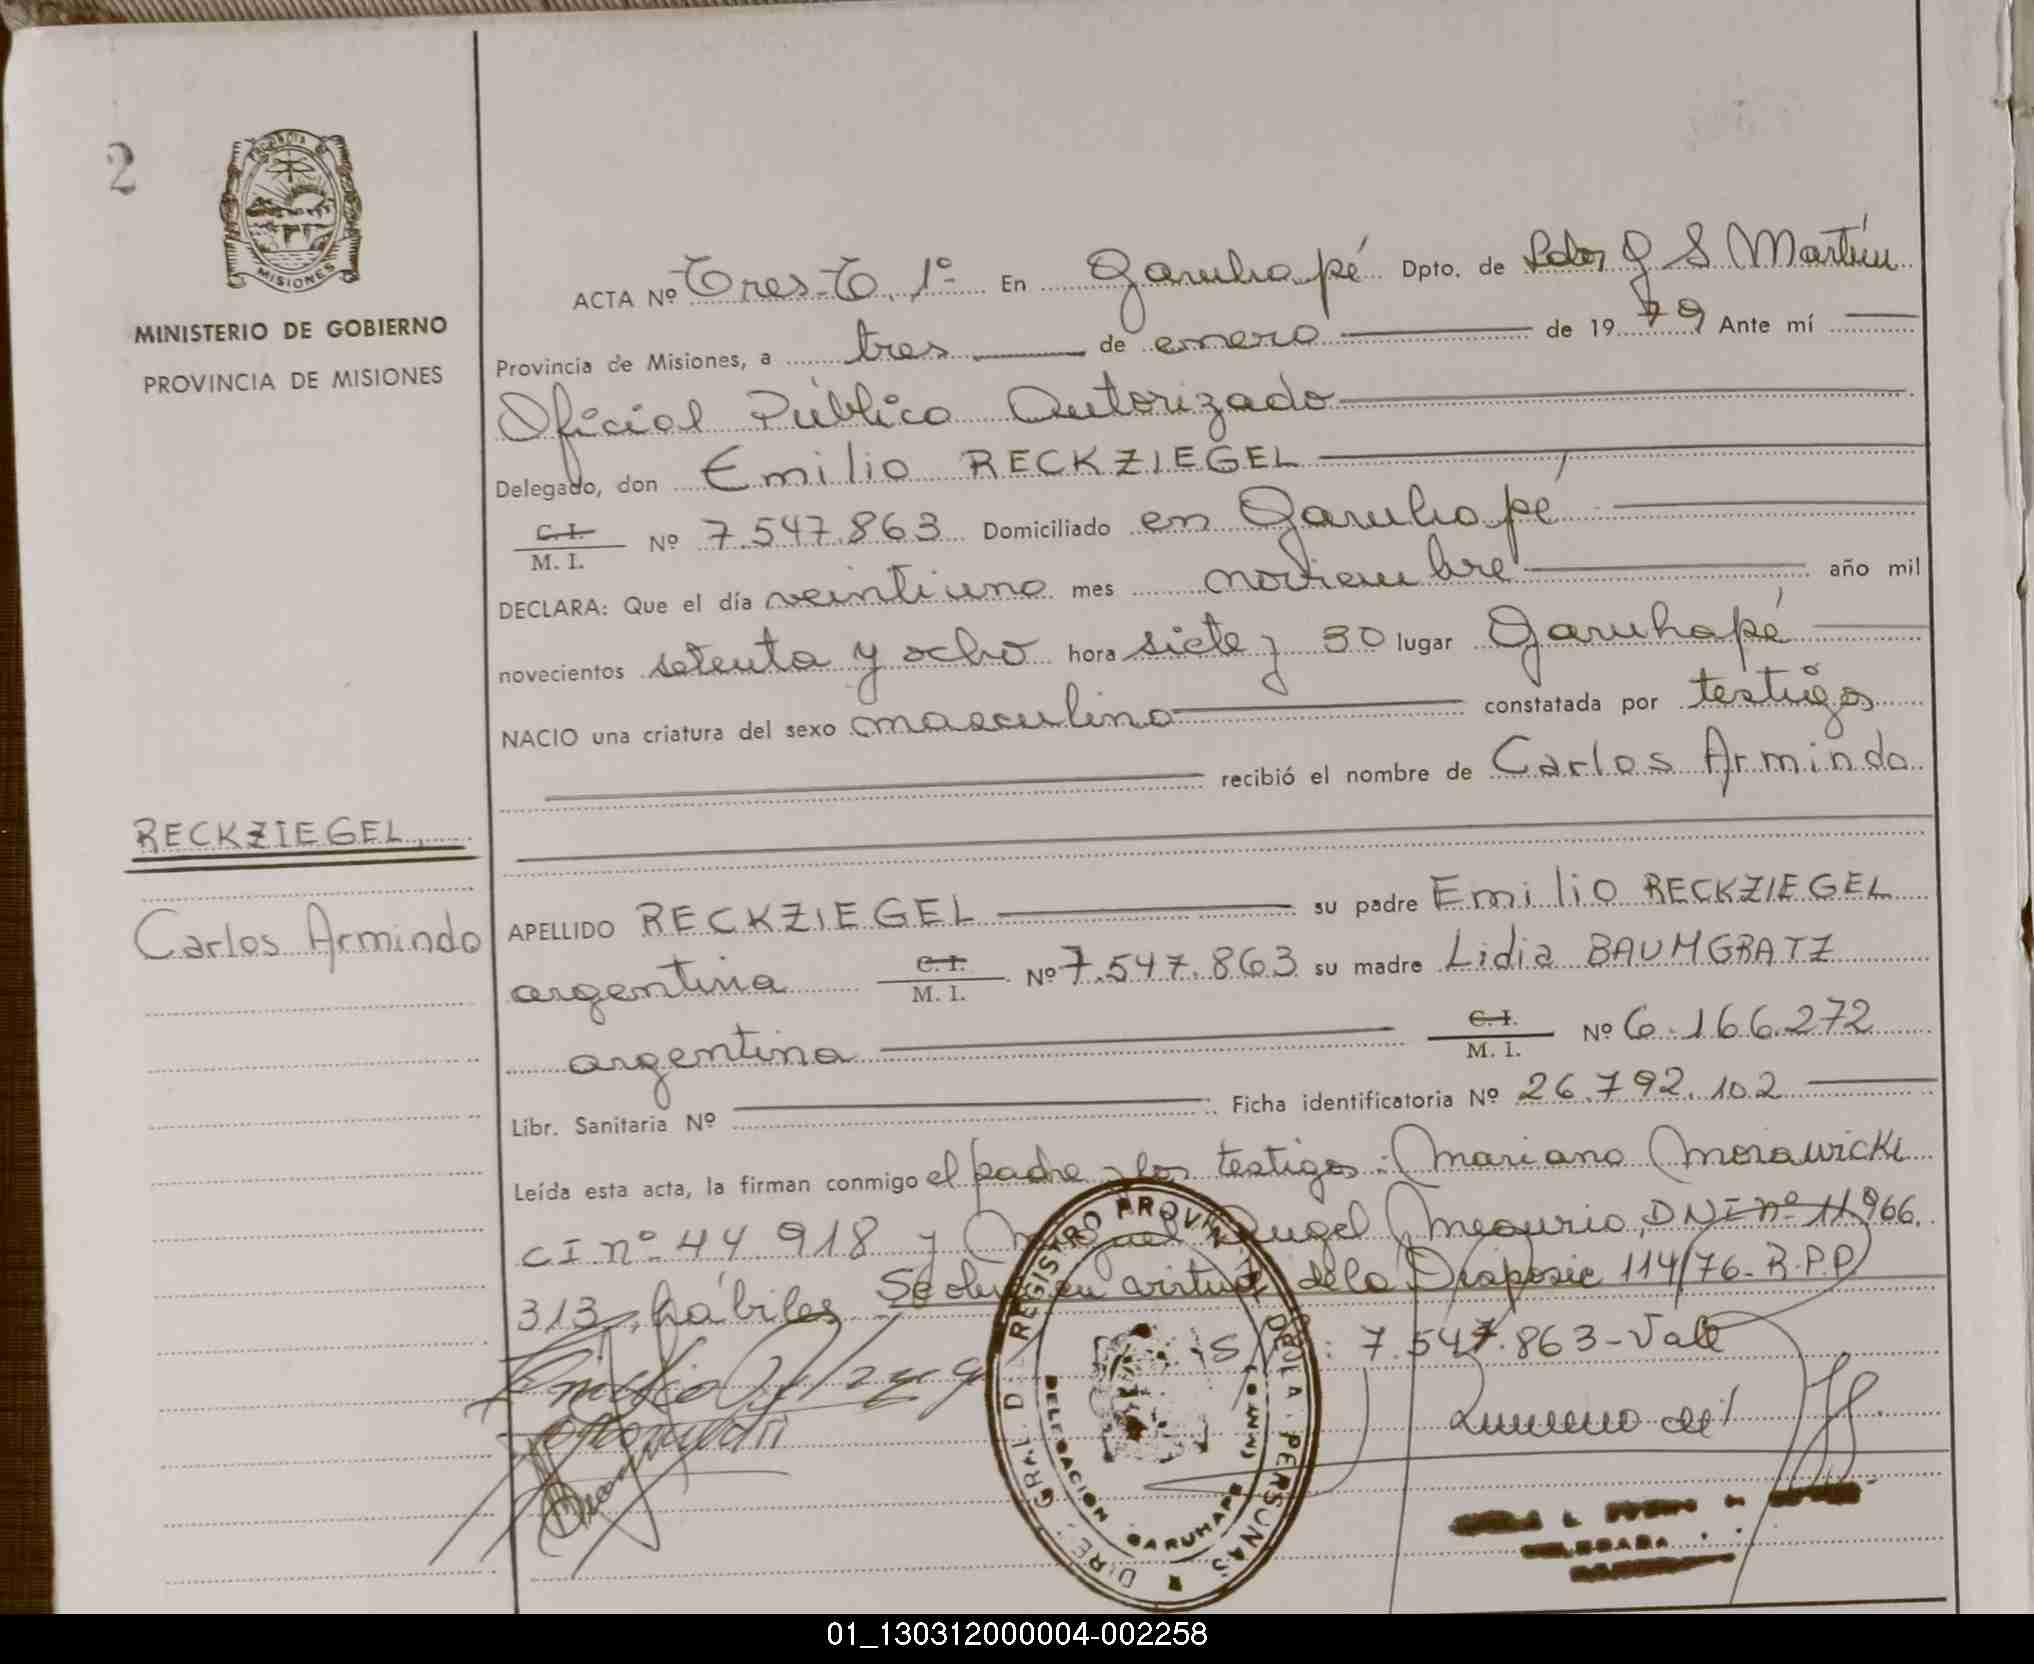 2
MISIONES
MINISTERIO DE GOBIERNO
PROVINCIA DE MISIONES
RECKZIEGEL,
Carlos Armindo
ACTA Nº Tres-T. 1º En Garuhapé Dpto. de Ldor G S Martín
Provincia de Misiones, a tres de enero de 1979 Ante mí
Oficial Público Autorizado
Delegado, don Emilio RECKZIEGEL
C.I. / M. I. Nº 7.547.863 Domiciliado en Garuhapé
DECLARA: Que el día veintiuno mes noviembre año mil
novecientos setenta y ocho hora siete y 30 lugar Garuhapé
NACIO una criatura del sexo masculino constatada por testigos
recibió el nombre de Carlos Armindo
APELLIDO RECKZIEGEL su padre Emilio RECKZIEGEL
argentina C.I. / M. I. Nº 7.547.863 su madre Lidia BAUMGRATZ
argentina C.I. / M. I. Nº 6.166.272
Libr. Sanitaria Nº Ficha identificatoria Nº 26.792.102
Leída esta acta, la firman conmigo el padre y los testigos: Mariano Morawicki
CI nº 44.918 y Miguel Angel DNI nº 11.966.
313, hábiles. en virtud de la Disposic 114/76-R.P.P
7.547.863-Vale
DIREC. GRAL. D REGISTRO PROVIN DE LA PERSONAS
DELEGACION GARUHAPE
DELEGADA
01_130312000004-002258